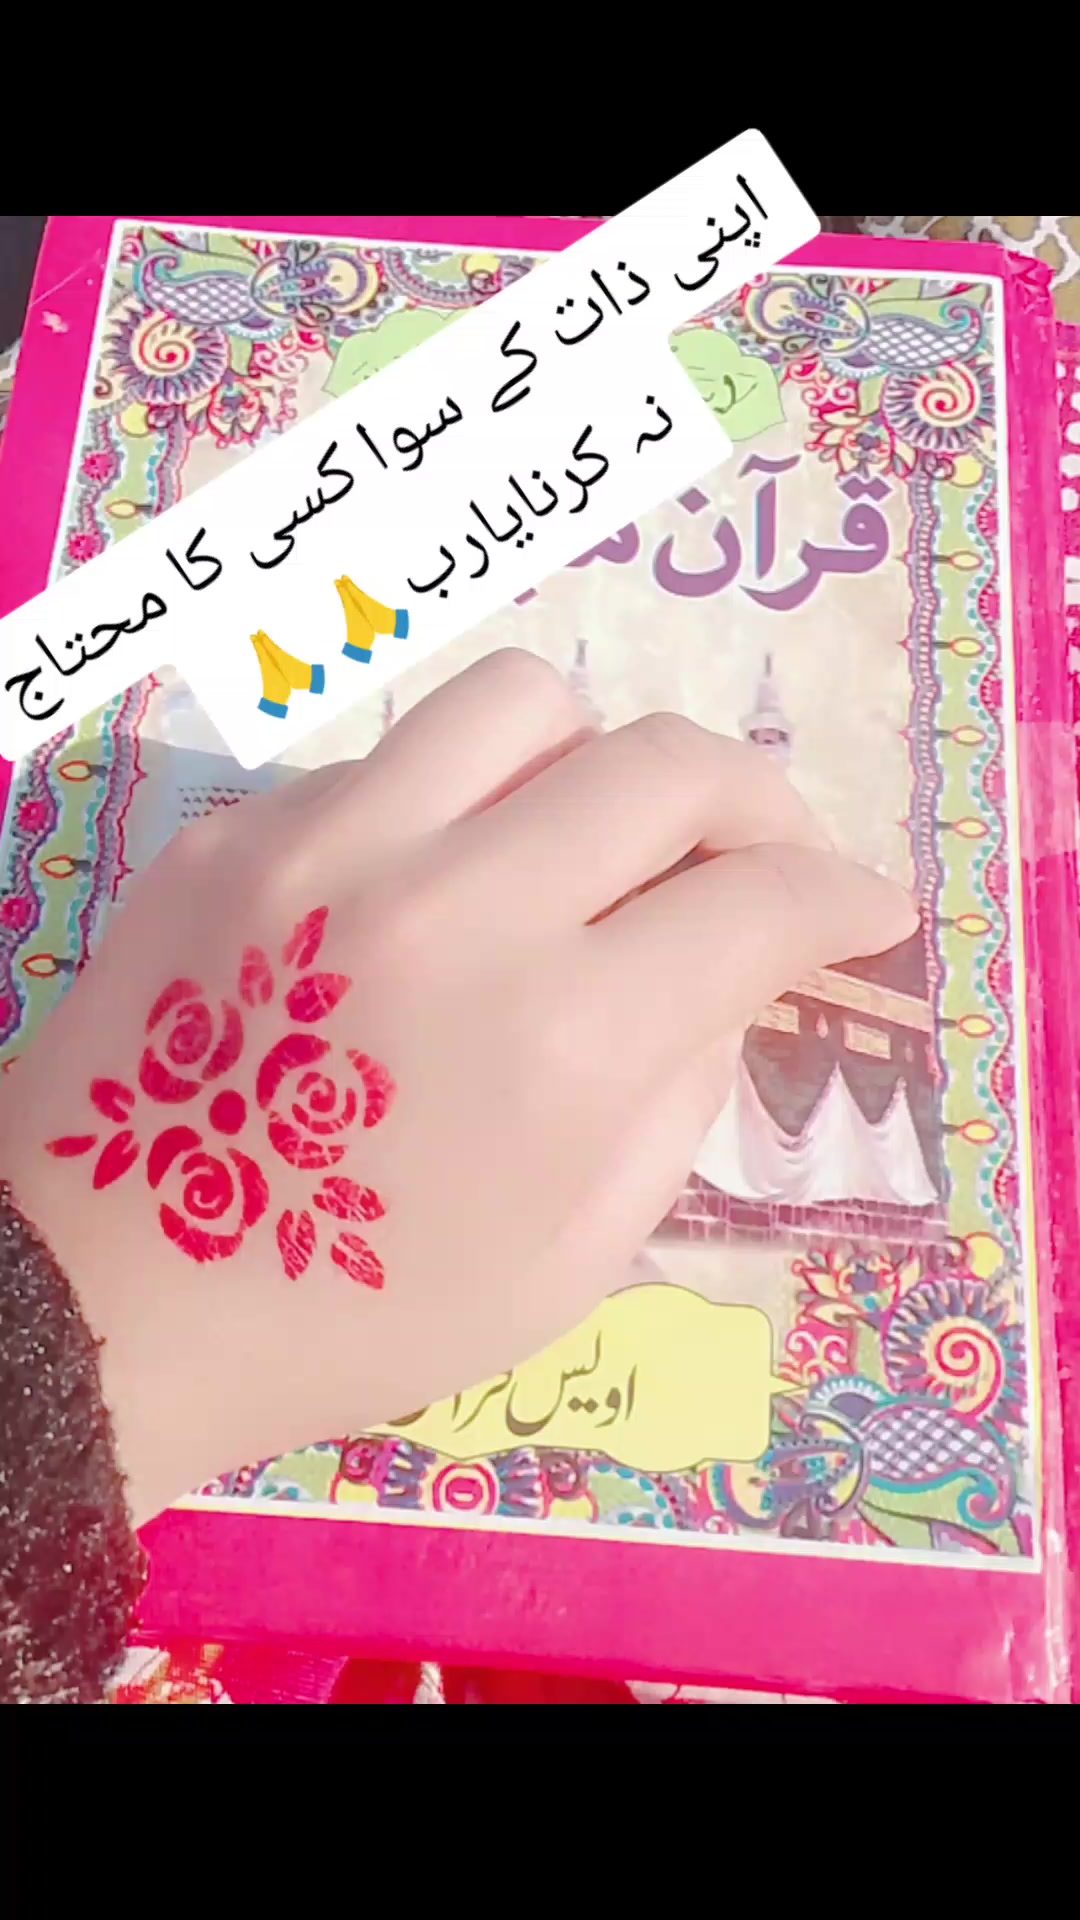 اپنی ذات کے سوا کسی کا محتاج
نہ کرنایارب 🙏🙏
قرآن
اویس